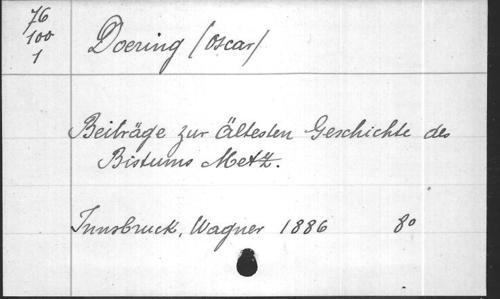 76
100
1
Doering (Oscar)
Beiträge zur ältesten Geschichte des
Bistums Metz.
Innsbruck, Wagner 1886 8o